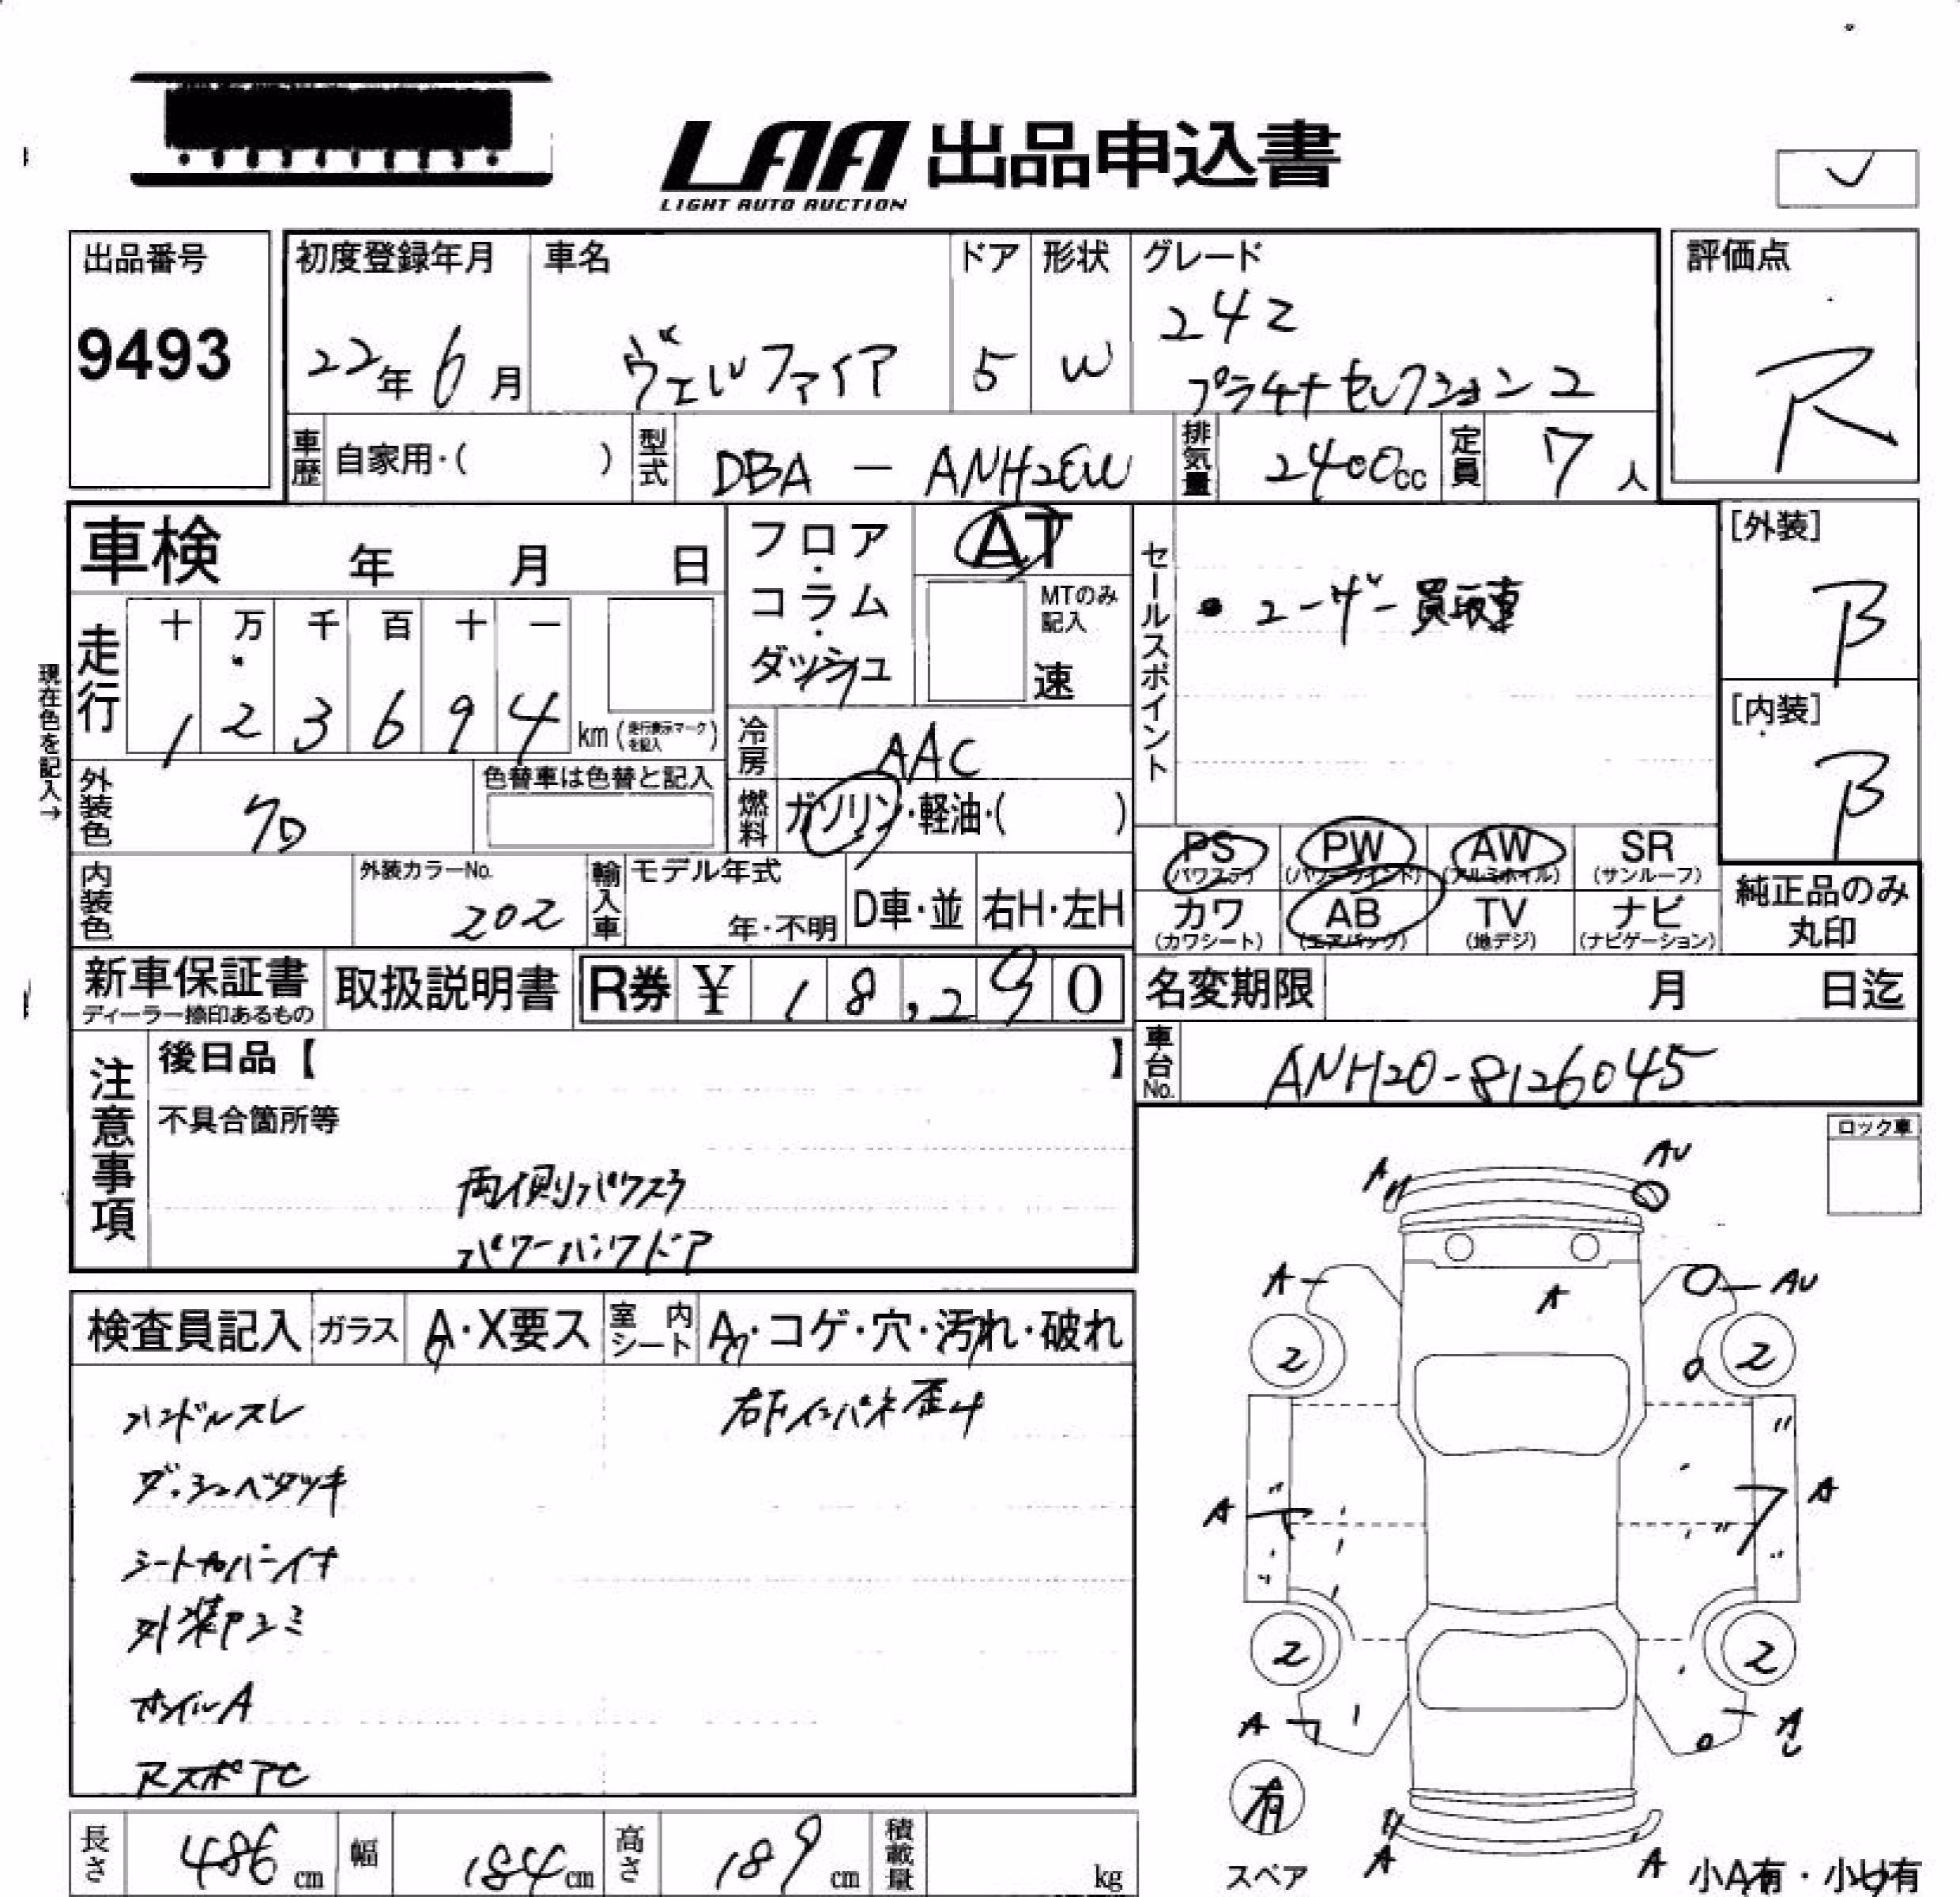 LAA 出品申込書
LIGHT AUTO AUCTION
出品番号
9493
初度登録年月
22年6月
車名
ヴェルファイア
ドア
5
形状
W
グレード
24Z
プラチナセレクション2
評価点
R
車歴 自家用・( )
型式 DBA - ANH20W
排気量 2400cc
定員 7人
車検 年 月 日
フロア・コラム・ダッシュ
AT
MTのみ記入
速
セールスポイント
・ユーザー買取車
[外装]
B
[内装]
B
現在色を記入→
走行
十 万 千 百 十 一
1 2 3 6 9 4 km (走行表示マークを記入)
冷房 AAC
外装色 クロ
色替車は色替と記入
燃料 ガソリン・軽油・( )
PS (パワステ)
PW (パワーウインド)
AW (アルミホイル)
SR (サンルーフ)
カワ (カワシート)
AB (エアバック)
TV (地デジ)
ナビ (ナビゲーション)
純正品のみ丸印
内装色
外装カラーNo.
202
輸入車
モデル年式
年・不明
D車・並
右H・左H
新車保証書
ディーラー捺印あるもの
取扱説明書
R券 ¥ 18,290
名変期限 月 日迄
車台No. ANH20-8126045
注意事項
後日品【 】
不具合箇所等
両側パワスラ
パワーバックドア
ロック車
検査員記入
ガラス A・X要ス
室内シート A・コゲ・穴・汚れ・破れ
ハンドルスレ
右Fインパネ歪み
ダッシュベタツキ
シートカバー付
外装アユミ
ホイルA
RスポアC
A
AU
A
A
AU
2
2
A
A
2
2
A
有
スペア
A
A
小A有・小U有
長さ 486 cm
幅 184 cm
高さ 189 cm
積載量 kg